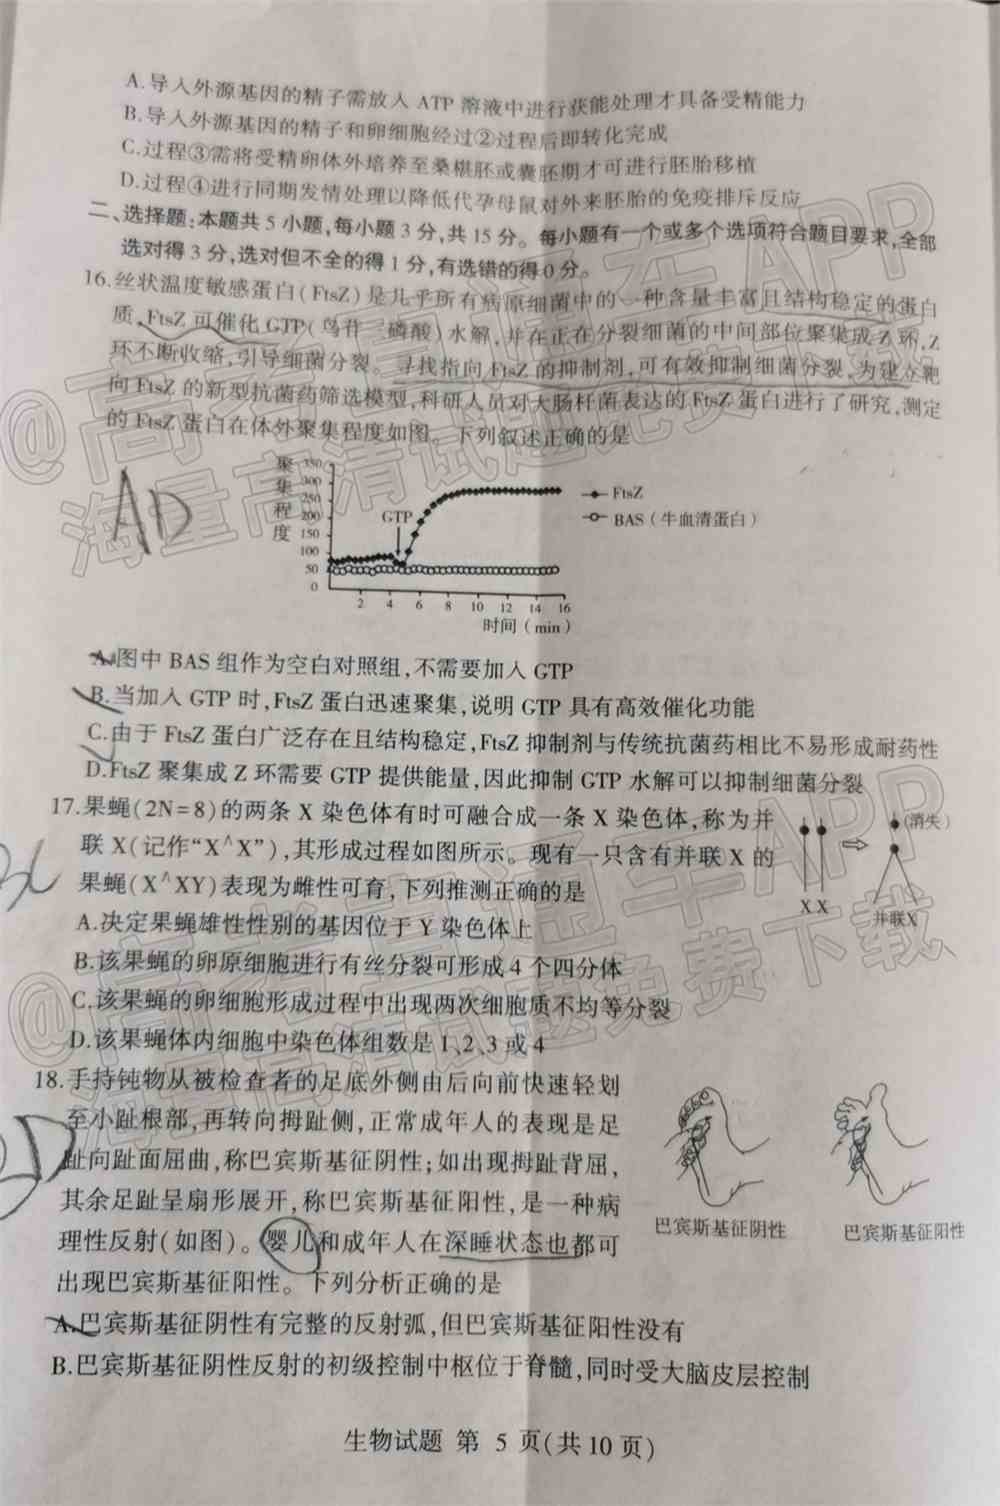 A.导入外源基因的精子需放入 ATP 溶液中进行获能处理才具备受精能力
B.导入外源基因的精子和卵细胞经过②过程后即转化完成
C.过程③需将受精卵体外培养至桑椹胚或囊胚期才可进行胚胎移植
D.过程④进行同期发情处理以降低代孕母鼠对外来胚胎的免疫排斥反应
二、选择题:本题共 5 小题,每小题 3 分,共 15 分。每小题有一个或多个选项符合题目要求,全部
选对得 3 分,选对但不全的得 1 分,有选错的得 0 分。
16.丝状温度敏感蛋白(FtsZ)是几乎所有病原细菌中的一种含量丰富且结构稳定的蛋白
质,FtsZ 可催化 GTP(鸟苷三磷酸)水解,并在正在分裂细菌的中间部位聚集成 Z 环,Z
环不断收缩,引导细菌分裂。寻找指向 FtsZ 的抑制剂,可有效抑制细菌分裂,为建立靶
向 FtsZ 的新型抗菌药筛选模型,科研人员对大肠杆菌表达的 FtsZ 蛋白进行了研究,测定
的 FtsZ 蛋白在体外聚集程度如图。下列叙述正确的是
AD
聚集程度
350
300
250
200
150
100
50
0
GTP
FtsZ
BAS(牛血清蛋白)
2 4 6 8 10 12 14 16
时间(min)
A.图中 BAS 组作为空白对照组,不需要加入 GTP
B.当加入 GTP 时,FtsZ 蛋白迅速聚集,说明 GTP 具有高效催化功能
C.由于 FtsZ 蛋白广泛存在且结构稳定,FtsZ 抑制剂与传统抗菌药相比不易形成耐药性
D.FtsZ 聚集成 Z 环需要 GTP 提供能量,因此抑制 GTP 水解可以抑制细菌分裂
17.果蝇(2N=8)的两条 X 染色体有时可融合成一条 X 染色体,称为并
联 X(记作“X^X”),其形成过程如图所示。现有一只含有并联 X 的
果蝇(X^XY)表现为雌性可育,下列推测正确的是
(消失)
X X
并联X
A.决定果蝇雄性性别的基因位于 Y 染色体上
B.该果蝇的卵原细胞进行有丝分裂可形成 4 个四分体
C.该果蝇的卵细胞形成过程中出现两次细胞质不均等分裂
D.该果蝇体内细胞中染色体组数是 1、2、3 或 4
18.手持钝物从被检查者的足底外侧由后向前快速轻划
至小趾根部,再转向拇趾侧,正常成年人的表现是足
趾向趾面屈曲,称巴宾斯基征阴性;如出现拇趾背屈,
其余足趾呈扇形展开,称巴宾斯基征阳性,是一种病
理性反射(如图)。婴儿和成年人在深睡状态也都可
出现巴宾斯基征阳性。下列分析正确的是
巴宾斯基征阴性
巴宾斯基征阳性
A.巴宾斯基征阴性有完整的反射弧,但巴宾斯基征阳性没有
B.巴宾斯基征阴性反射的初级控制中枢位于脊髓,同时受大脑皮层控制
生物试题 第 5 页(共 10 页)
@高考直通车APP
海量高清试题免费下载
@高考直通车APP
海量高清试题免费下载